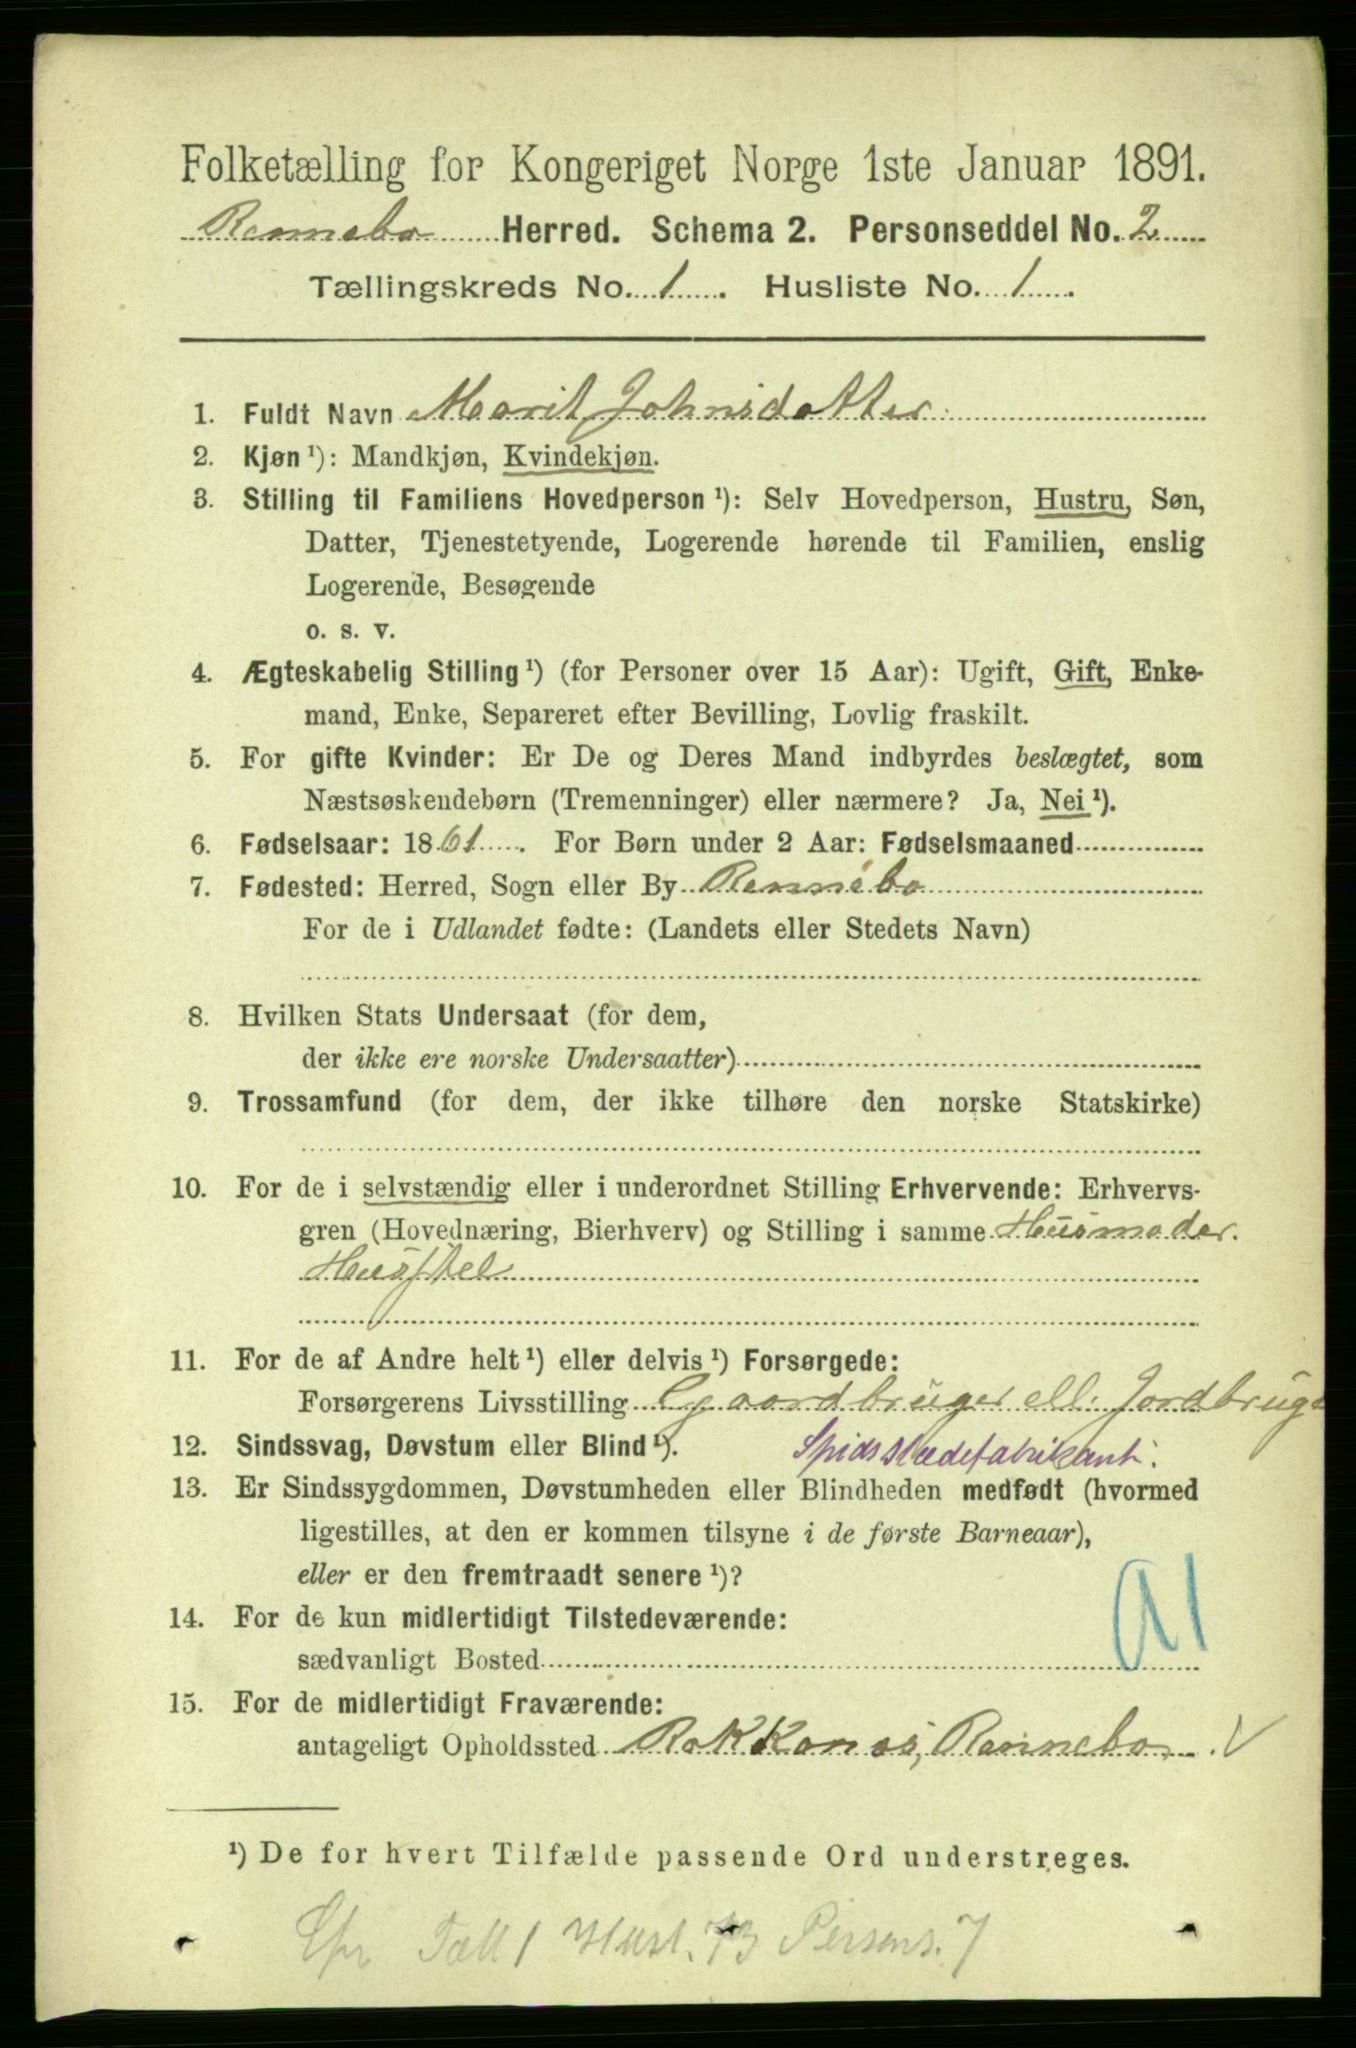 Folketælling for Kongeriget Norge 1ste Januar 1891.
Rennebo Herred. Schema 2. Personseddel No. 2
Tællingskreds No. 1. Husliste No. 1.
1. Fuldt Navn Marit Johnsdatter.
2. Kjøn ¹): Mandkjøn, Kvindekjøn.
3. Stilling til Familiens Hovedperson ¹): Selv Hovedperson, Hustru, Søn,
Datter, Tjenestetyende, Logerende hørende til Familien, enslig
Logerende, Besøgende
o. s. v.
4. Ægteskabelig Stilling ¹) (for Personer over 15 Aar): Ugift, Gift, Enke-
mand, Enke, Separeret efter Bevilling, Lovlig fraskilt.
5. For gifte Kvinder: Er De og Deres Mand indbyrdes beslægtet, som
Næstsøskendebørn (Tremenninger) eller nærmere? Ja, Nei ¹).
6. Fødselsaar: 1861. For Børn under 2 Aar: Fødselsmaaned
7. Fødested: Herred, Sogn eller By Rennebo
For de i Udlandet fødte: (Landets eller Stedets Navn)
8. Hvilken Stats Undersaat (for dem,
der ikke ere norske Undersaatter)
9. Trossamfund (for dem, der ikke tilhøre den norske Statskirke)
10. For de i selvstændig eller i underordnet Stilling Erhvervende: Erhvervs-
gren (Hovednæring, Bierhverv) og Stilling i samme Husmoder.
Husstel
11. For de af Andre helt ¹) eller delvis ¹) Forsørgede:
Forsørgerens Livsstilling Gaardbruger ell. Jordbrug
12. Sindssvag, Døvstum eller Blind ¹). Spidsslædefabrikant.
13. Er Sindssygdommen, Døvstumheden eller Blindheden medfødt (hvormed
ligestilles, at den er kommen tilsyne i de første Barneaar),
eller er den fremtraadt senere ¹)?
14. For de kun midlertidigt Tilstedeværende:
sædvanligt Bosted
15. For de midlertidigt Fraværende:
antageligt Opholdssted Rokkones, Rennebo. V
¹) De for hvert Tilfælde passende Ord understreges.
Cfr Tæll 1 Husl. 73 Persons. 7